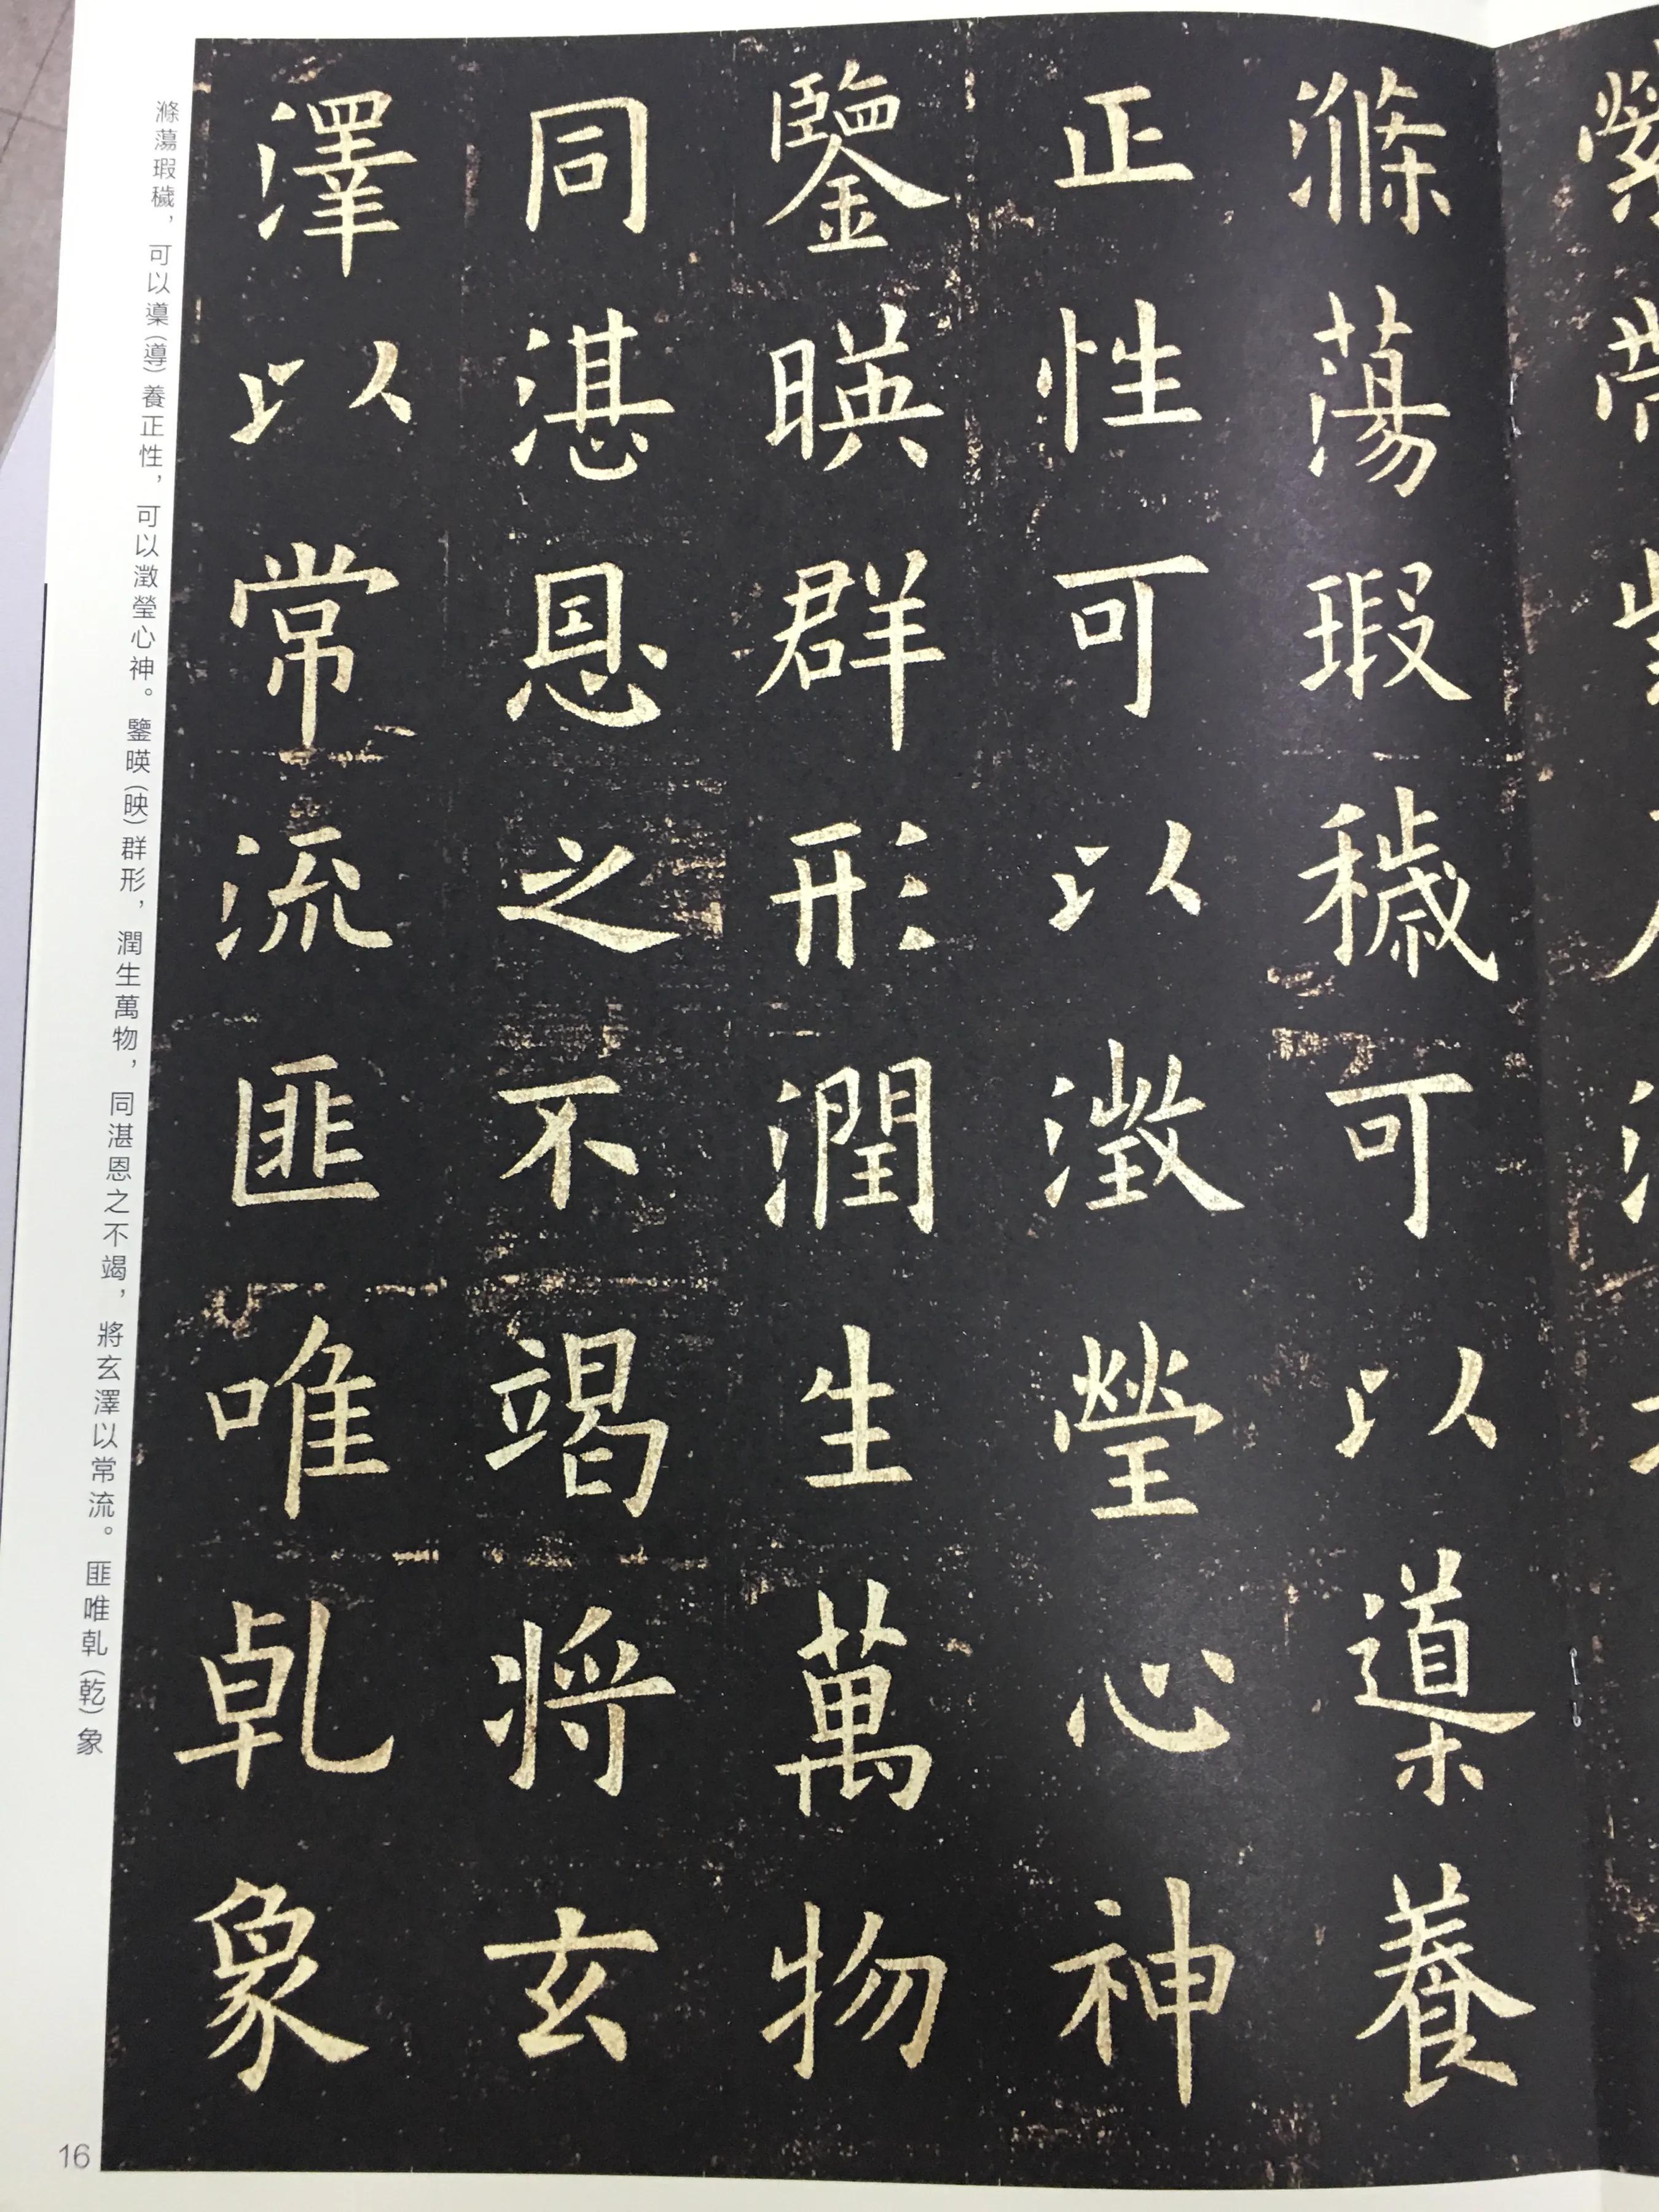 滌蕩瑕穢可以䆃養
正性可以澂瑩心神
鑒暎群形潤生萬物
同湛恩之不竭将玄
澤以常流匪唯乹象
滌蕩瑕穢，可以䆃（導）養正性，可以澂瑩心神。鑒暎（映）群形，潤生萬物，同湛恩之不竭，將玄澤以常流。匪唯乹（乾）象
16